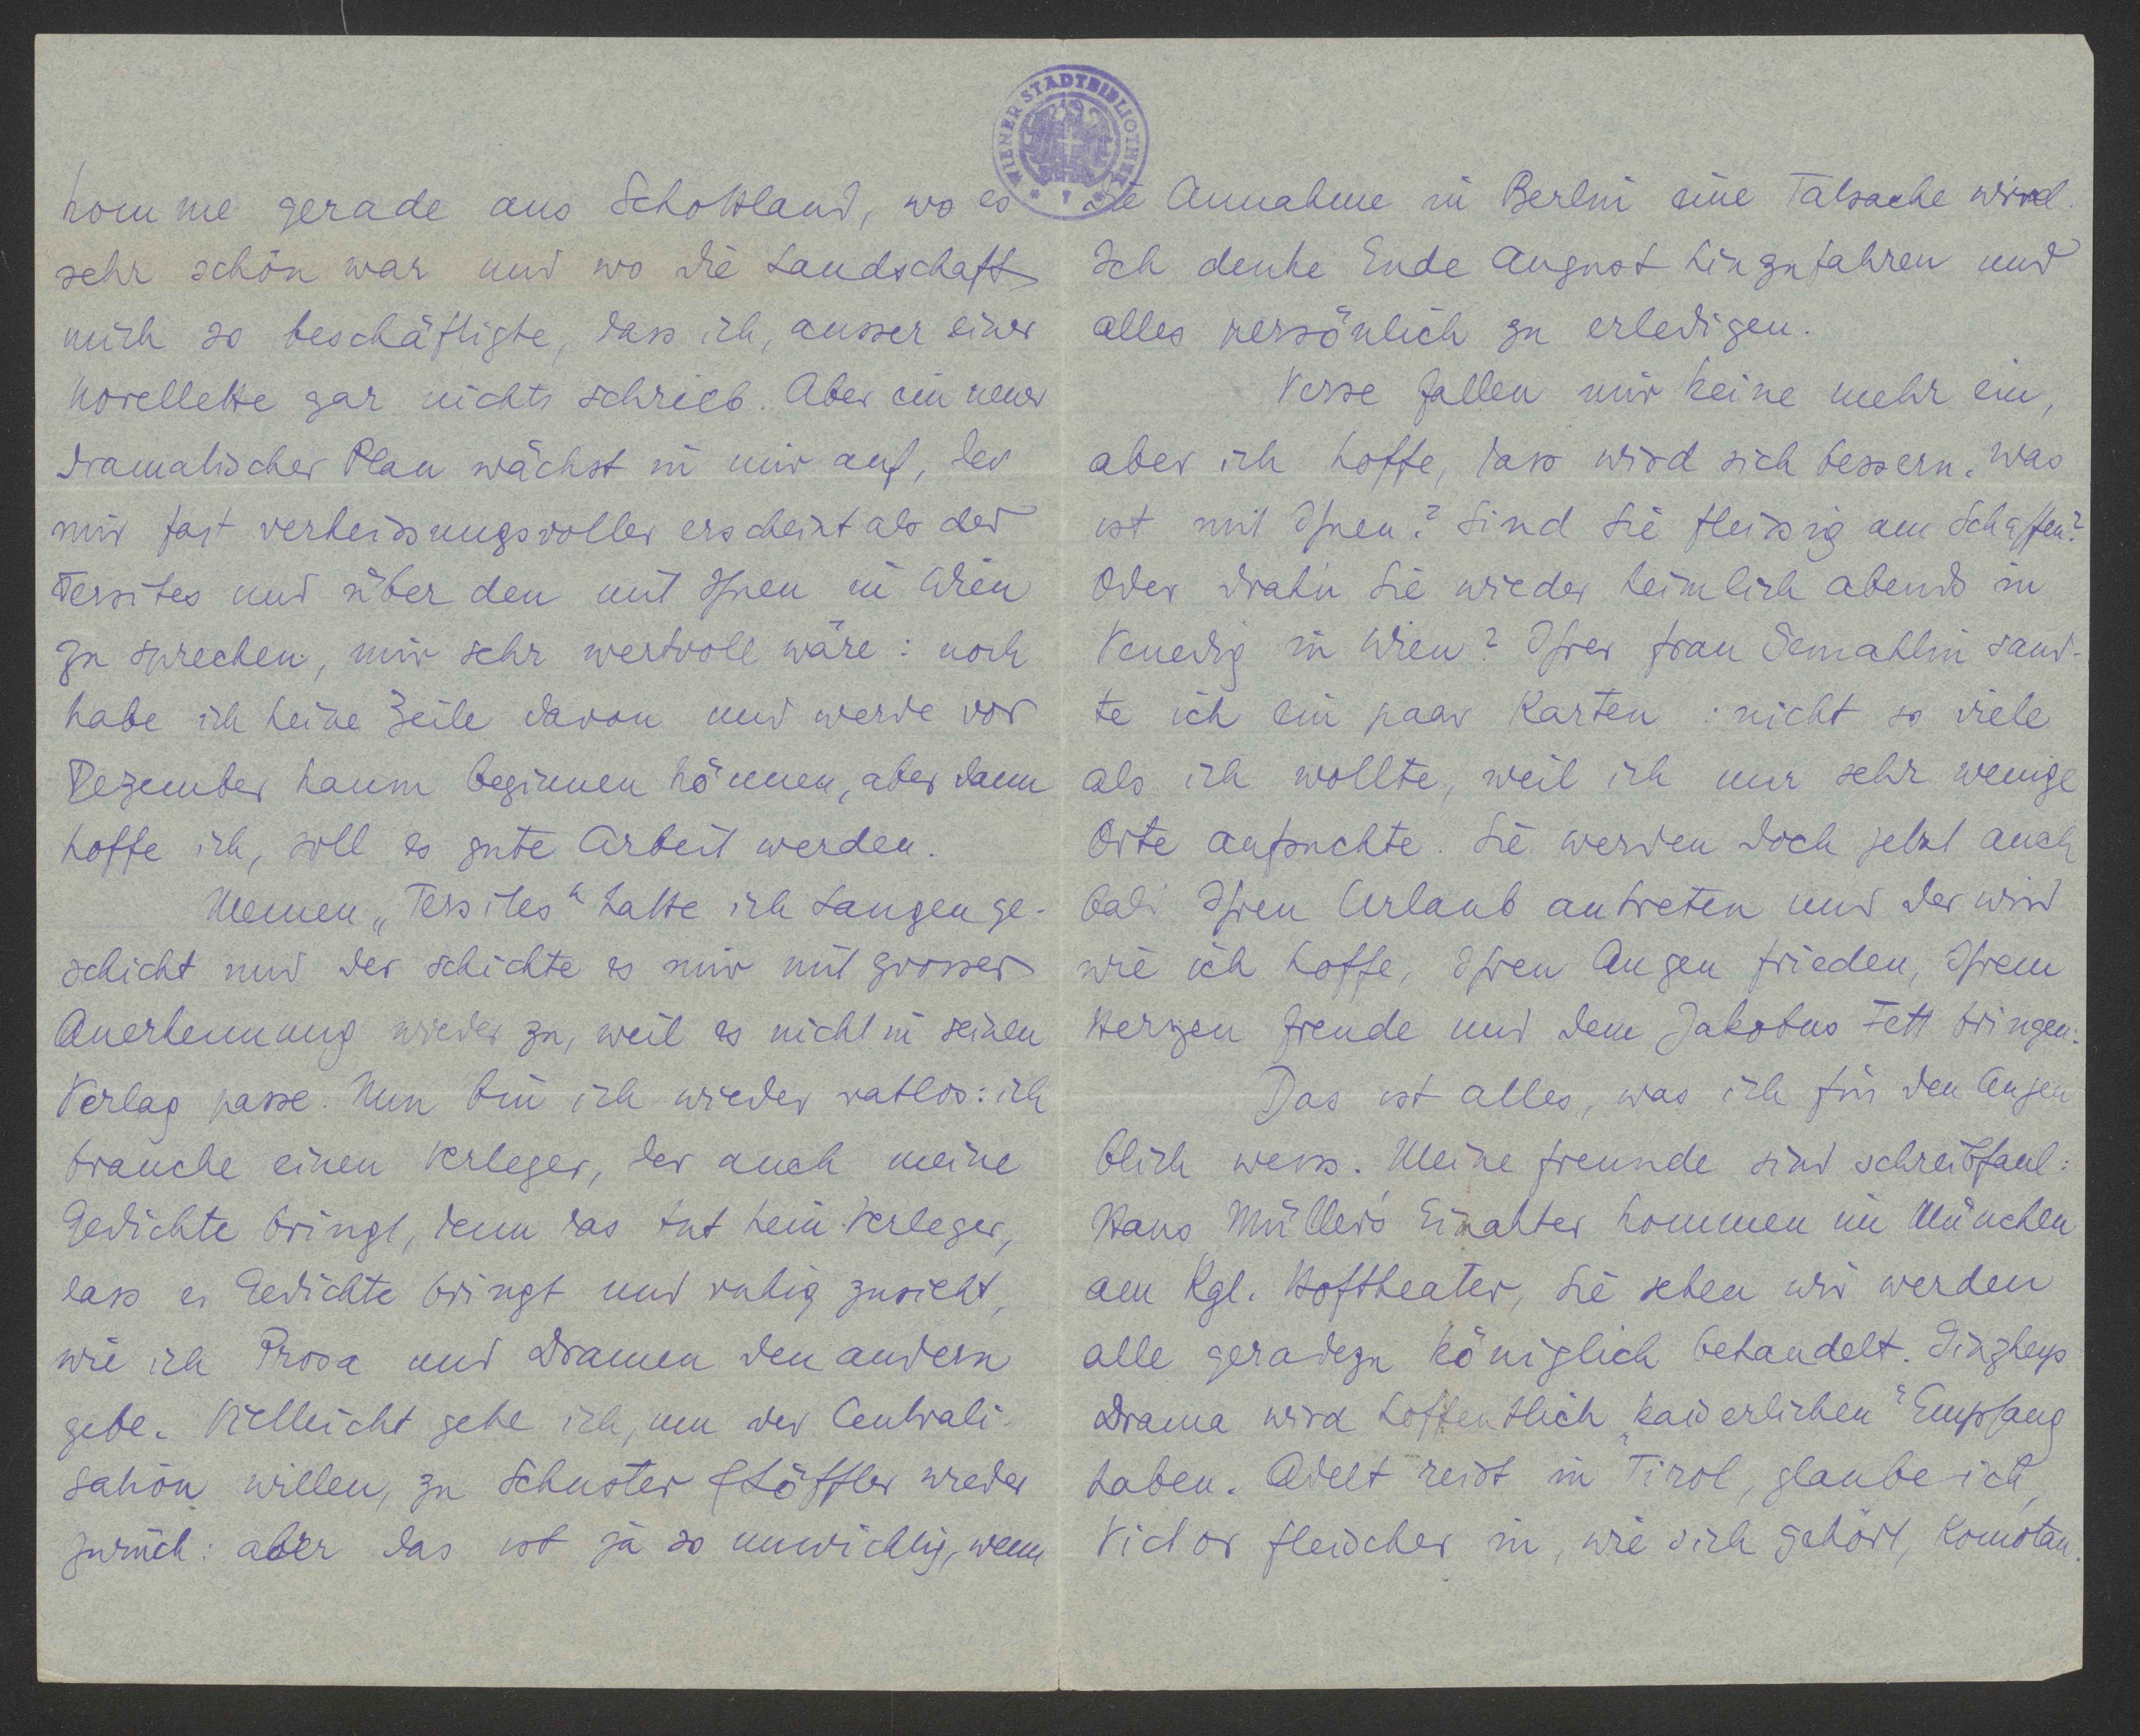 WIENER STADTBIBLIOTHEK
komme gerade aus Schottland, wo es
sehr schön war und wo die Landschaft
mich so beschäftigte, dass ich, ausser einer
Novellette gar nichts schrieb. Aber ein neuer
dramatischer Plan wächst in mir auf, der
mir fast verheissungsvoller erscheint als der
Tersites und über den mit Ihnen in Wien
zu sprechen, mir sehr wertvoll wäre: noch
habe ich keine Zeile davon und werde vor
Dezember kaum beginnen können, aber dann
hoffe ich, soll es gute Arbeit werden.
Meinen „Tersites“ hatte ich Langen ge-
schickt und der schickte es mir mit grosser
Anerkennung wieder zu, weil es nicht in seinen
Verlag passe. Nun bin ich wieder ratlos: ich
brauche einen Verleger, der auch meine
Gedichte bringt, denn das tut kein Verleger,
dass er Gedichte bringt und ruhig zusieht,
wie ich Prosa und Dramen den andern
gebe. Vielleicht gehe ich, um der Centrali-
sation willen, zu Schuster & Löffler wieder
zurück: aber das ist ja so unwichtig, wenn
die Annahme in Berlin eine Tatsache wird.
Ich denke Ende August hinzufahren und
alles persönlich zu erledigen.
Verse fallen mir keine mehr ein,
aber ich hoffe, dass wird sich bessern. Was
ist mit Ihnen? Sind Sie fleissig am Schaffen?
Oder drah'n Sie wieder heimlich abends in
Venedig in Wien? Ihrer Frau Gemahlin sand-
te ich ein paar Karten: nicht so viele
als ich wollte, weil ich nur sehr wenige
Orte aufsuchte. Sie werden doch jetzt auch
bald Ihren Urlaub antreten und der wird
wie ich hoffe, Ihren Augen Frieden, Ihrem
Herzen Freude und dem Jakobus Fett bringen.
Das ist alles, was ich für den Augen
blick weiss. Meine Freunde sind schreibfaul:
Hans Müller's Einakter kommen in München
am Kgl. Hoftheater, Sie sehen wir werden
alle geradezu königlich behandelt. Ginzkeys
Drama wird hoffentlich „kaiserlichen“ Empfang
haben. Adelt reist in Tirol, glaube ich,
Victor Fleischer in, wie sich gehört, Komotau.